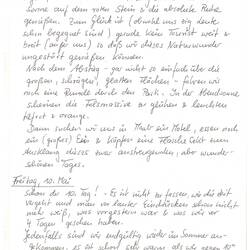 Sonne auf dem roten Stein & die absolute Ruhe
genießen. Zum Glück ist (obwohl uns eig. heute
schon begegnet sind) gerade kein Tourist weit &
breit (außer uns) so daß wir dieses Naturwunder
ungestört genießen können.
Nach dem Abstieg - gar nicht so einfach über die
großen, schrägen, glatten Flächen - fahren wir
noch eine Runde durch den Park. In der Abendsonne
scheinen die Felsmassive zu glühen & leuchten
tiefrot & orange.
Dann suchen wir uns in Moab ein Hotel, essen noch
ein (großes) Eis & köpfen eine Flasche Sekt zum
Ausklang dieses zwar anstrengenden, aber wunder-
schönen Tages.
Freitag, 10. Mai
Schon der 10. Tag! - Es ist nicht zu fassen, wie die Zeit
vergeht und man vor lauter Eindrücken schon nicht
mehr weiß, was vorgestern war & was wir vor
4 Tagen gesehen haben.
Jedenfalls sind wir endgültig wieder im Sommer an-
gekommen, es ist schon sehr warm als wir gegen